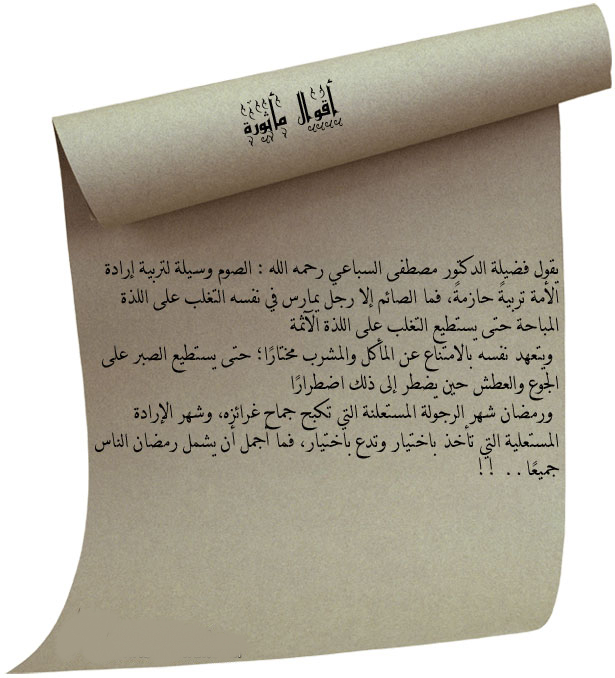 أقوال مأثورة
يقول فضيلة الدكتور مصطفى السباعي رحمه الله : الصوم وسيلة لتربية إرادة
الأمة تربيةً حازمةً، فما الصائم إلا رجل يمارس في نفسه التغلب على اللذة
المباحة حتى يستطيع التغلب على اللذة الآثمة
ويتعهد نفسه بالامتناع عن المأكل والمشرب مختارًا؛ حتى يستطيع الصبر على
الجوع والعطش حين يضطر إلى ذلك اضطرارًا
ورمضان شهر الرجولة المستعلنة التي تكبح جماح غرائزه، وشهر الإرادة
المستعلية التي تأخذ باختيار وتدع باختيار، فما أجمل أن يشمل رمضان الناس
جميعًا . . ! !